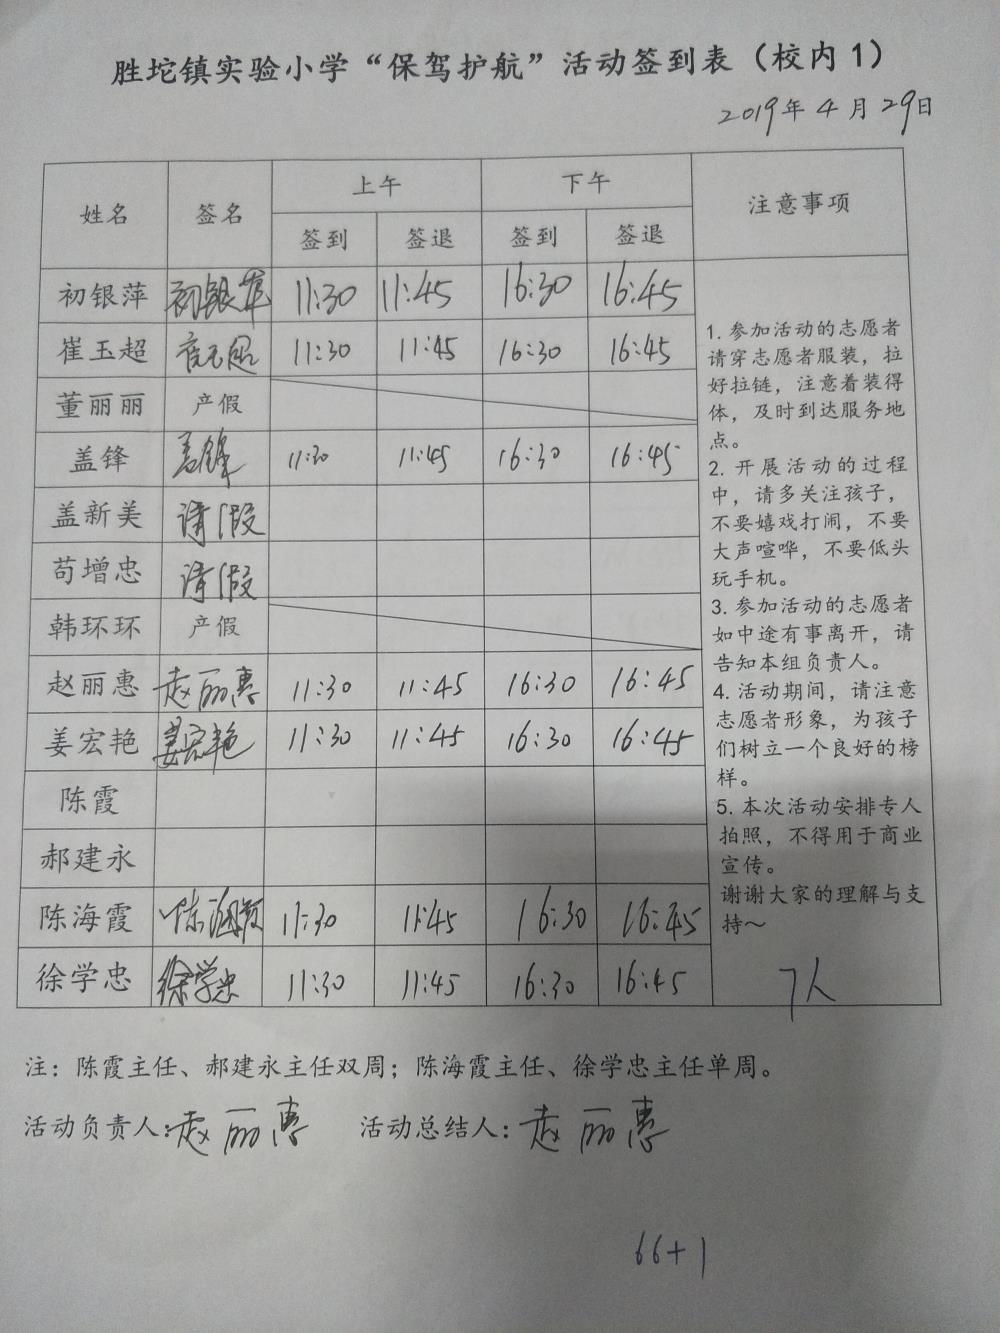 胜坨镇实验小学“保驾护航”活动签到表（校内1）
2019年 4 月 29日
姓名 签名 上午 下午 注意事项
签到 签退 签到 签退
初银萍 初银萍 11:30 11:45 16:30 16:45
崔玉超 崔玉超 11:30 11:45 16:30 16:45
董丽丽 产假
盖锋 盖锋 11:30 11:45 16:30 16:45
盖新美 请假
苟增忠 请假
韩环环 产假
赵丽惠 赵丽惠 11:30 11:45 16:30 16:45
姜宏艳 姜宏艳 11:30 11:45 16:30 16:45
陈霞
郝建永
陈海霞 陈海霞 11:30 11:45 16:30 16:45
徐学忠 徐学忠 11:30 11:45 16:30 16:45
1. 参加活动的志愿者
请穿志愿者服装，拉
好拉链，注意着装得
体，及时到达服务地
点。
2. 开展活动的过程
中，请多关注孩子，
不要嬉戏打闹，不要
大声喧哗，不要低头
玩手机。
3. 参加活动的志愿者
如中途有事离开，请
告知本组负责人。
4. 活动期间，请注意
志愿者形象，为孩子
们树立一个良好的榜
样。
5. 本次活动安排专人
拍照，不得用于商业
宣传。
谢谢大家的理解与支
持～
7人
注：陈霞主任、郝建永主任双周；陈海霞主任、徐学忠主任单周。
活动负责人：赵丽惠 活动总结人：赵丽惠
66+1